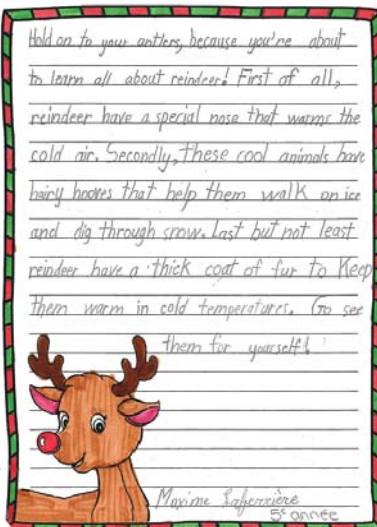 Hold on to your antlers, because you're about
to learn all about reindeer! First of all,
reindeer have a special nose that warms the
cold air. Secondly, these cool animals have
hairy hooves that help them walk on ice
and dig through snow. Last but not least
reindeer have a thick coat of fur to keep
them warm in cold temperatures. Go see
them for yourself!
Maxime Laferrière
5e année